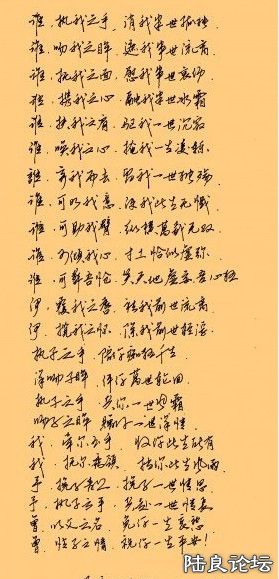 谁,执我之手,消我半世孤独
谁,吻我之眸,遮我半世流离
谁,抚我之面,慰我半世哀伤
谁,携我之心,融我半世冰霜
谁,扶我之肩,驱我一世沉寂
谁,唤我之心,掩我一生凌轹
谁,弃我而去,留我一世独殇
谁,可明我意,使我此生无憾
谁,可助我臂,纵横万载无双
谁,可倾我心,寸土恰似虚弥
谁,可葬吾怆,笑天地虚妄吾心狂
伊,覆我之唇,祛我前世流离
伊,揽我之怀,除我前世轻浮
执子之手,陪你痴狂千生
深吻子眸,伴你万世轮回
执子之手,共你一世风霜
吻子之眸,赠你一世深情
我,牵尔玉手,收你此生所有
我,抚尔秀颈,挡你此生风雨
予,挽子青丝,挽子一世情思
予,执子之手,共赴一世情长
曾,以父之名,免你一生哀愁
曾,怜子之情,祝你一生平安!
陆良论坛